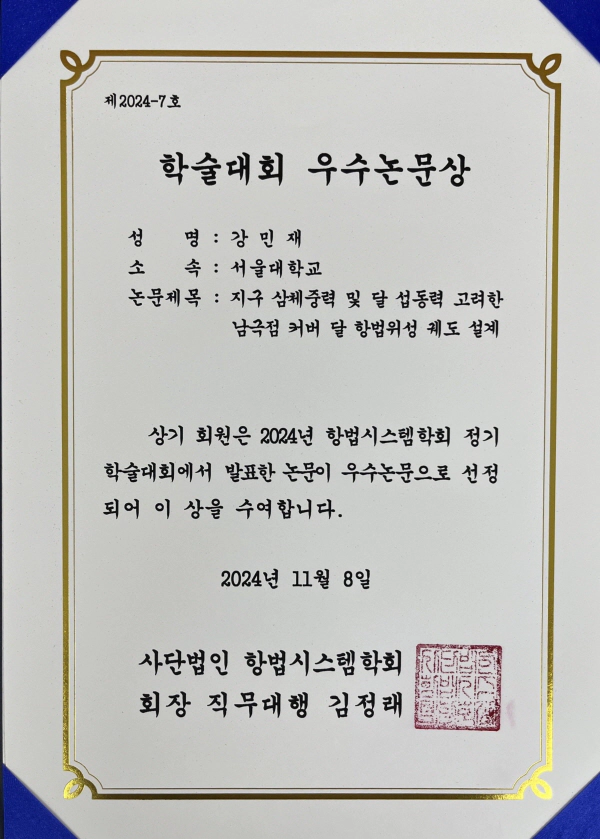 제2024-7호
학술대회 우수논문상
성 명 : 강민재
소 속 : 서울대학교
논문제목 : 지구 삼체중력 및 달 섭동력 고려한
남극점 커버 달 항법위성 궤도 설계
상기 회원은 2024년 항법시스템학회 정기
학술대회에서 발표한 논문이 우수논문으로 선정
되어 이 상을 수여합니다.
2024년 11월 8일
사단법인 항법시스템학회
회장 직무대행 김정태